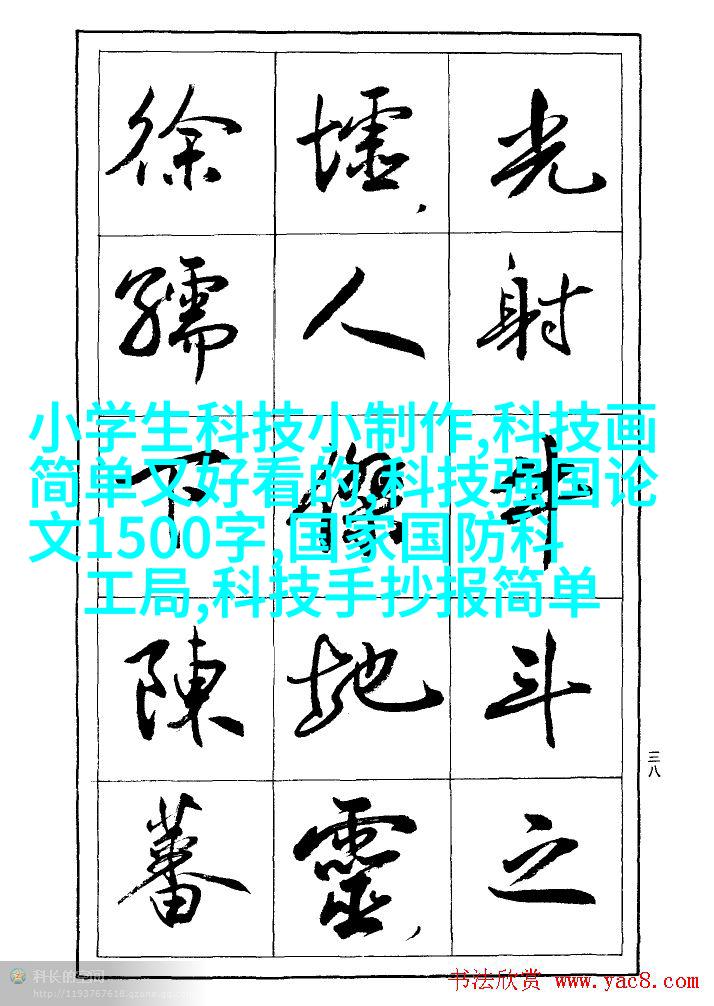 光射牛斗之
墟,人傑地靈,
徐孺下陳蕃
小学生科技小制作,科技画
简单又好看的,科技强国论
文1500字,国家国防科
工局,科技手抄报简单
三八
科长的空间
http://1193767618.qzone.qq.com
书法欣赏 www.yac8.com